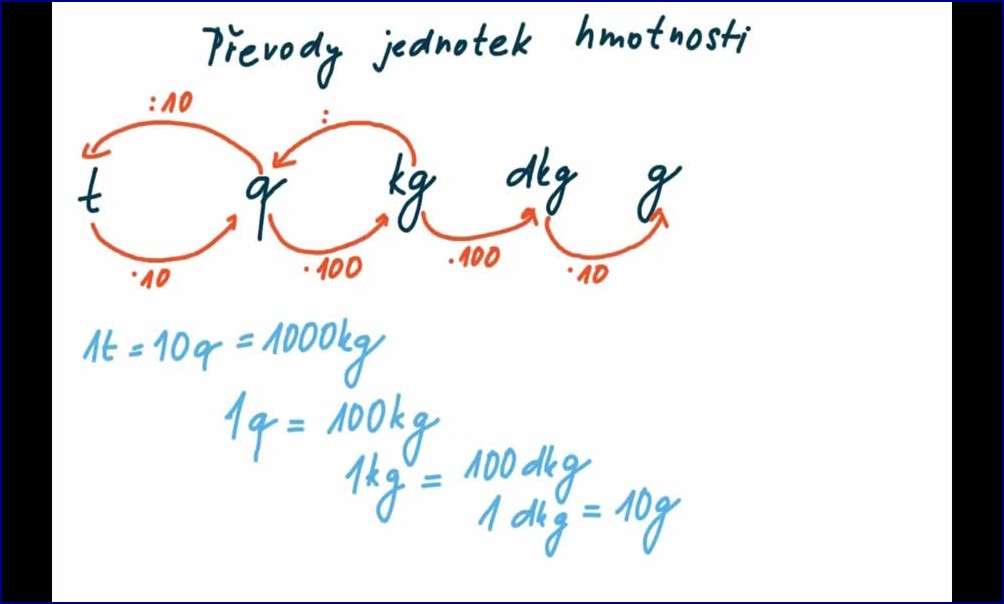 Převody jednotek hmotnosti
:10 :
t q kg dkg g
·10 ·100 ·100 ·10
1t = 10q = 1000kg
1q = 100kg
1kg = 100dkg
1 dkg = 10g